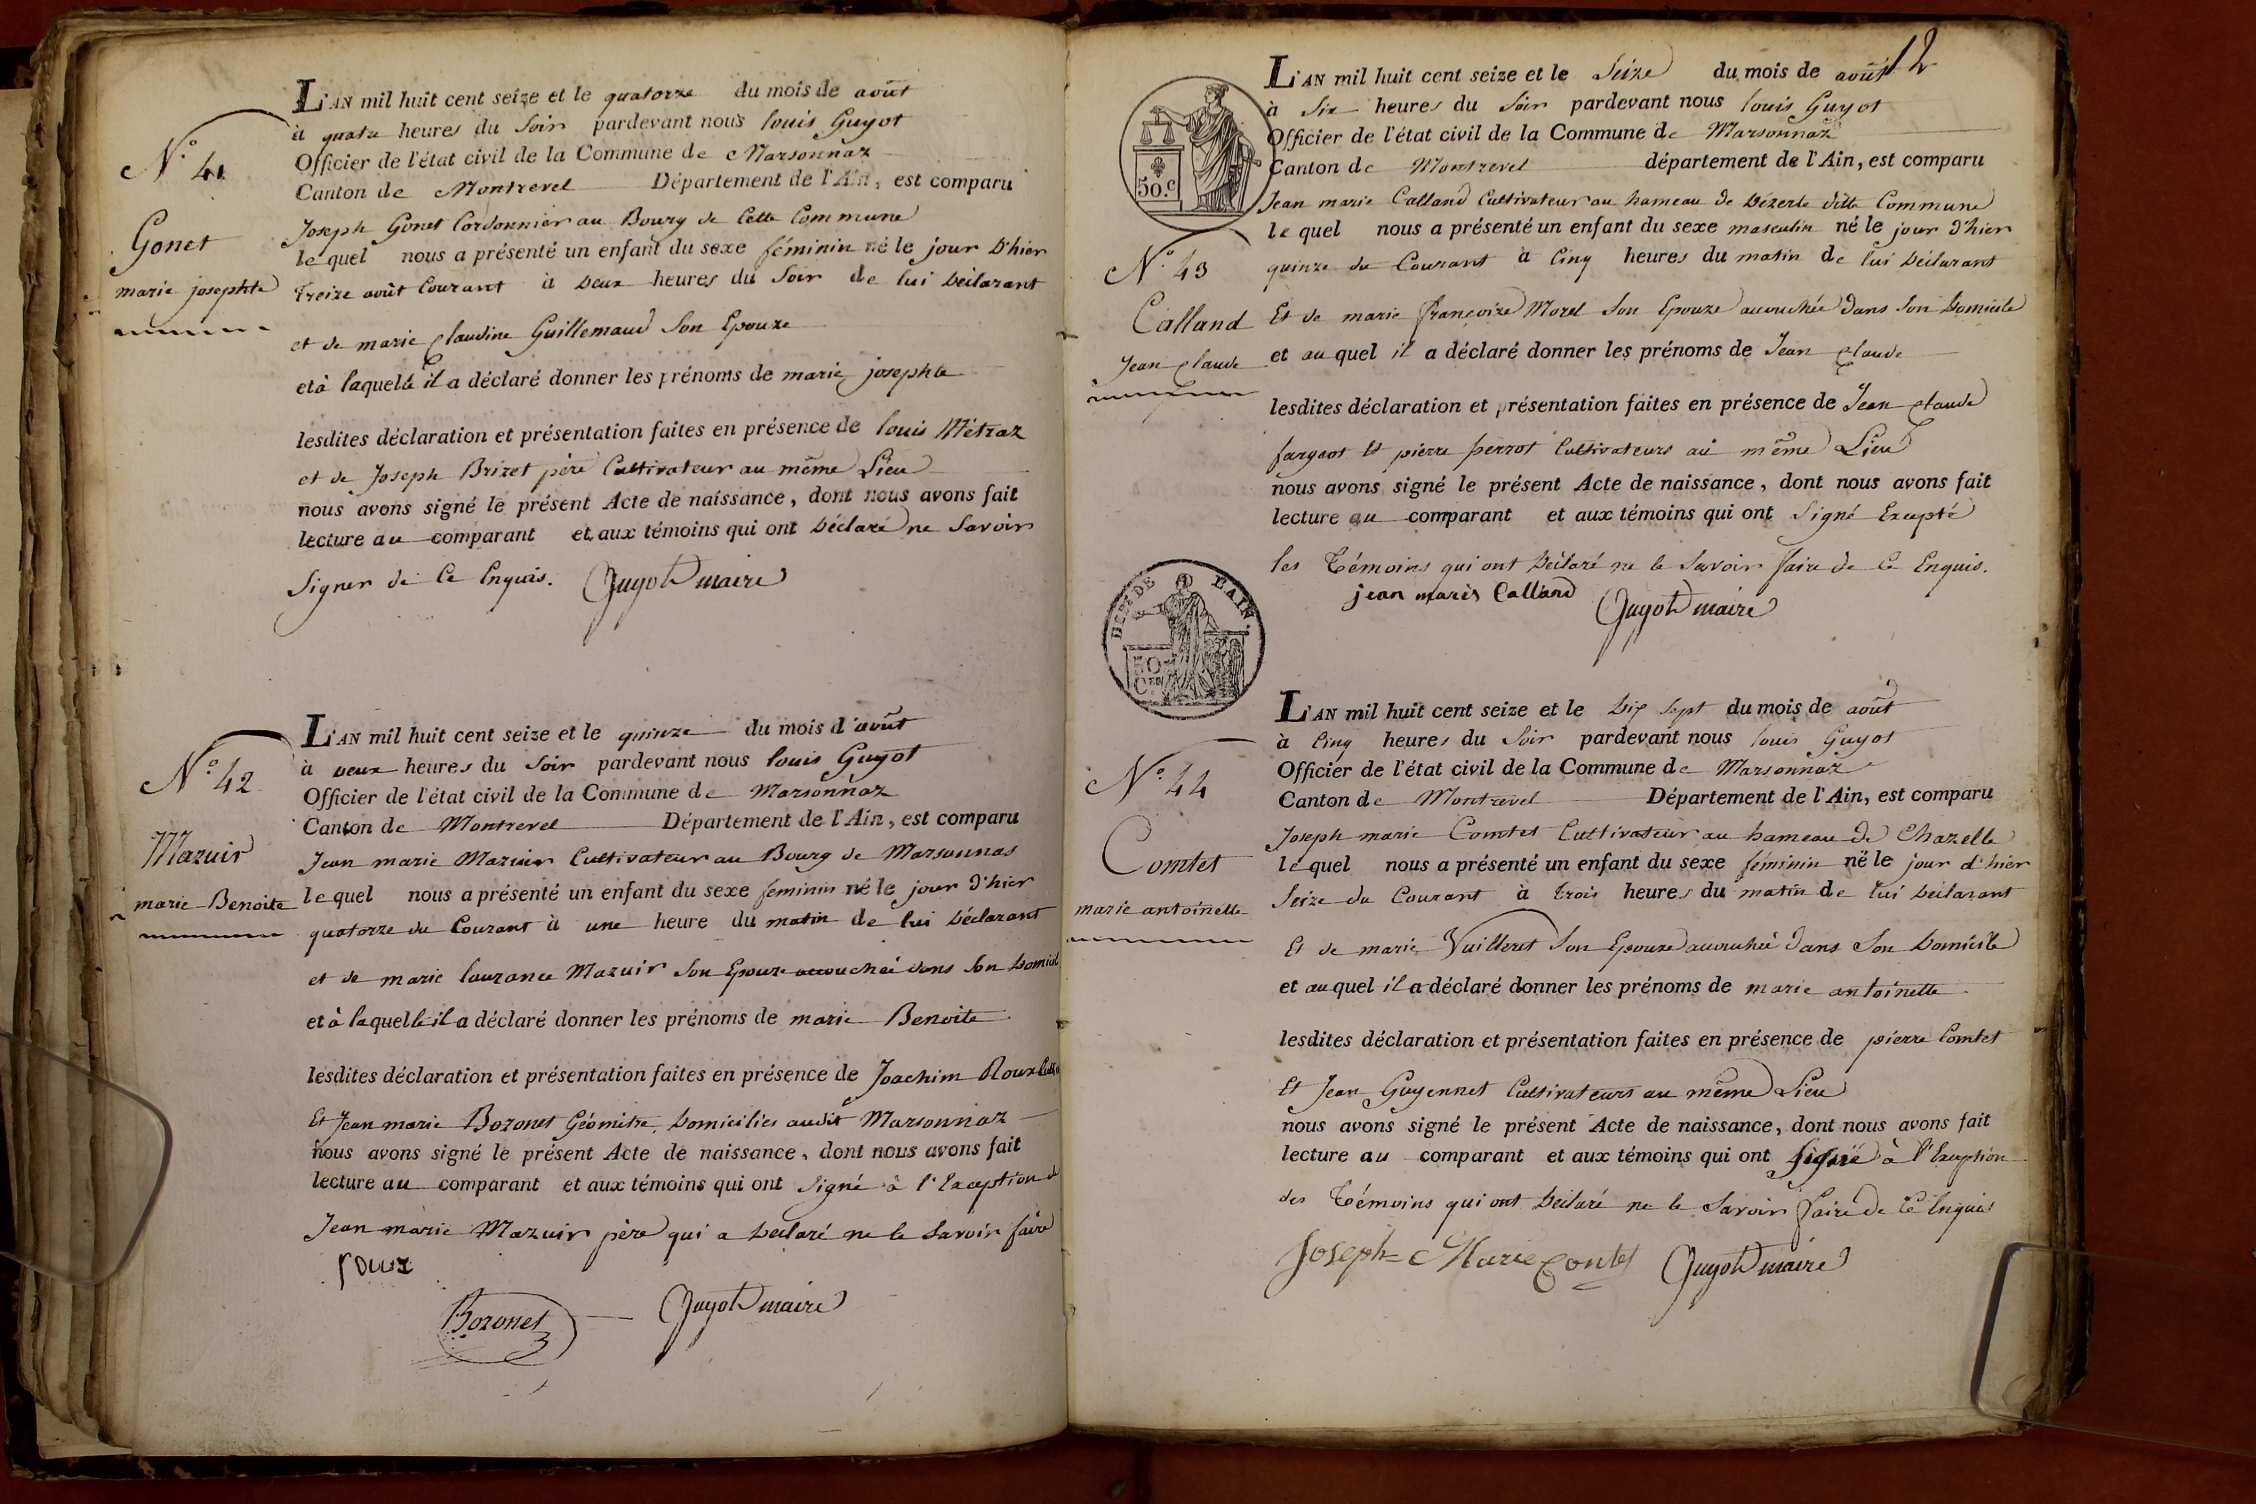 N.° 41
Gonet
marie josephte
L'AN mil huit cent seize et le quatorze du mois de août
à quatre heures du Soir pardevant nous louis Guyot
Officier de l'état civil de la Commune de Marsonnaz
Canton de Montrevel Département de l'Ain, est comparu
Joseph Gonet Cordonnier au Bourg de Cette Commune
lequel nous a présenté un enfant du sexe féminin né le jour D'hier
treize août Courant à Deux heures du Soir de lui Déclarant
et de marie Claudine Guillemaud Son Epouze
et à laquelle il a déclaré donner les prénoms de marie josephte
lesdites déclaration et présentation faites en présence de louis Métraz
et de Joseph Brizet père Cultivateur au même Lieu
nous avons signé le présent Acte de naissance, dont nous avons fait
lecture au comparant et aux témoins qui ont Déclaré ne Savoir
Signer de Ce Enquis. Guyot maire
N.° 42
Mazuir
marie Benoite
L'AN mil huit cent seize et le quinze du mois d'août
à Deux heures du Soir pardevant nous louis Guyot
Officier de l'état civil de la Commune de Marsonnaz
Canton de Montrevel Département de l'Ain, est comparu
Jean marie Mazuir Cultivateur au Bourg de Marsonnas
lequel nous a présenté un enfant du sexe féminin né le jour D'hier
quatorze du Courant à une heure du matin de lui Déclarant
et de marie laurance Mazuir Son Epouze accouchée dans Son Domicil
et à laquelle il a déclaré donner les prénoms de marie Benoite
lesdites déclaration et présentation faites en présence de Joachim Roux
Et Jean marie Bozonet Géomètre Domiciliés audit Marsonnaz
nous avons signé le présent Acte de naissance, dont nous avons fait
lecture au comparant et aux témoins qui ont Signé à l'Exception d
Jean marie Mazuir père qui a Déclaré ne le Savoir faire
roux
Bozonet Guyot maire
12
50.c
N.° 43
Calland
Jean Claude
L'AN mil huit cent seize et le Seize du mois de août
à Six heures du Soir pardevant nous louis Guyot
Officier de l'état civil de la Commune de Marsonnaz
Canton de Montrevel département de l'Ain, est comparu
Jean marie Calland Cultivateur au hameau de Dézerte dite Commune
lequel nous a présenté un enfant du sexe masculin né le jour d'hier
quinze du Courant à Cinq heures du matin de lui Déclarant
Et de marie françoise Morel Son Epouze accouchée dans Son Domicile
et auquel il a déclaré donner les prénoms de Jean Claude
lesdites déclaration et présentation faites en présence de Jean Claude
fargeot Et pierre perrot Cultivateurs au même Lieu
nous avons signé le présent Acte de naissance, dont nous avons fait
lecture au comparant et aux témoins qui ont Signé Excepté
les Témoins qui ont Déclaré ne le Savoir faire de Ce Enquis.
jean marie Calland Guyot maire
DEPt DE L'AIN.
50
CEN
N.° 44
Comtet
marie antoinette
L'AN mil huit cent seize et le Dix Sept du mois de août
à Cinq heures du Soir pardevant nous louis Guyot
Officier de l'état civil de la Commune de Marsonnaz
Canton de Montrevel Département de l'Ain, est comparu
Joseph marie Comtet Cultivateur au hameau de Chazelle
lequel nous a présenté un enfant du sexe féminin né le jour d'hier
Seize du Courant à trois heures du matin de lui Déclarant
Et de marie Vuilleret Son Epouze accouchée dans Son Domicile
et auquel il a déclaré donner les prénoms de marie antoinette
lesdites déclaration et présentation faites en présence de pierre Comtet
Et Jean Guyennet Cultivateurs au même Lieu
nous avons signé le présent Acte de naissance, dont nous avons fait
lecture au comparant et aux témoins qui ont Signé à l'Exception
des Témoins qui ont Déclaré ne le Savoir faire de Ce Enquis
Joseph=Marie Contet Guyot maire